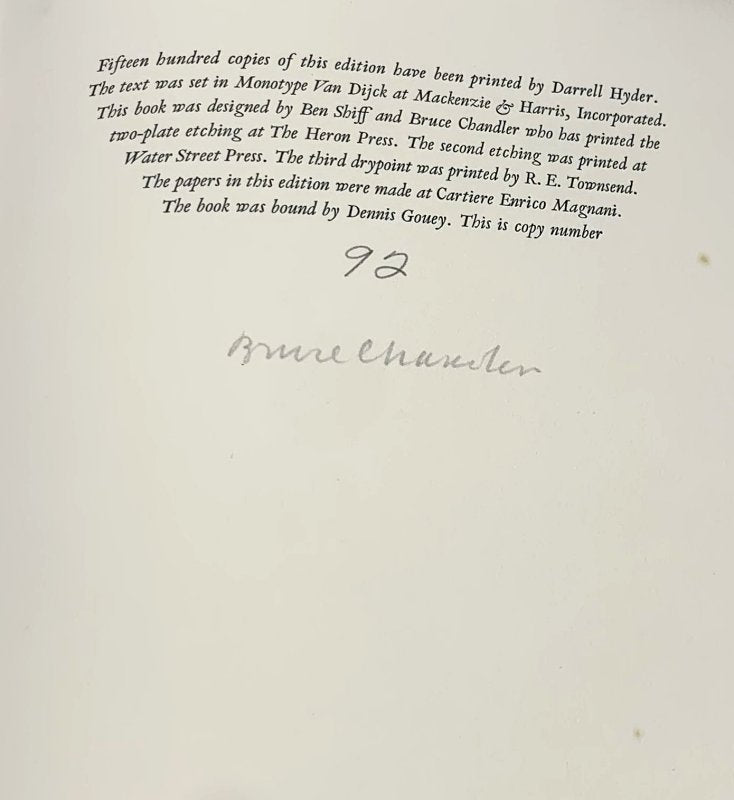 Fifteen hundred copies of this edition have been printed by Darrell Hyder.
The text was set in Monotype Van Dijck at Mackenzie & Harris, Incorporated.
This book was designed by Ben Shiff and Bruce Chandler who has printed the
two-plate etching at The Heron Press. The second etching was printed at
Water Street Press. The third drypoint was printed by R. E. Townsend.
The papers in this edition were made at Cartiere Enrico Magnani.
The book was bound by Dennis Gouey. This is copy number
92
Bruce Chandler